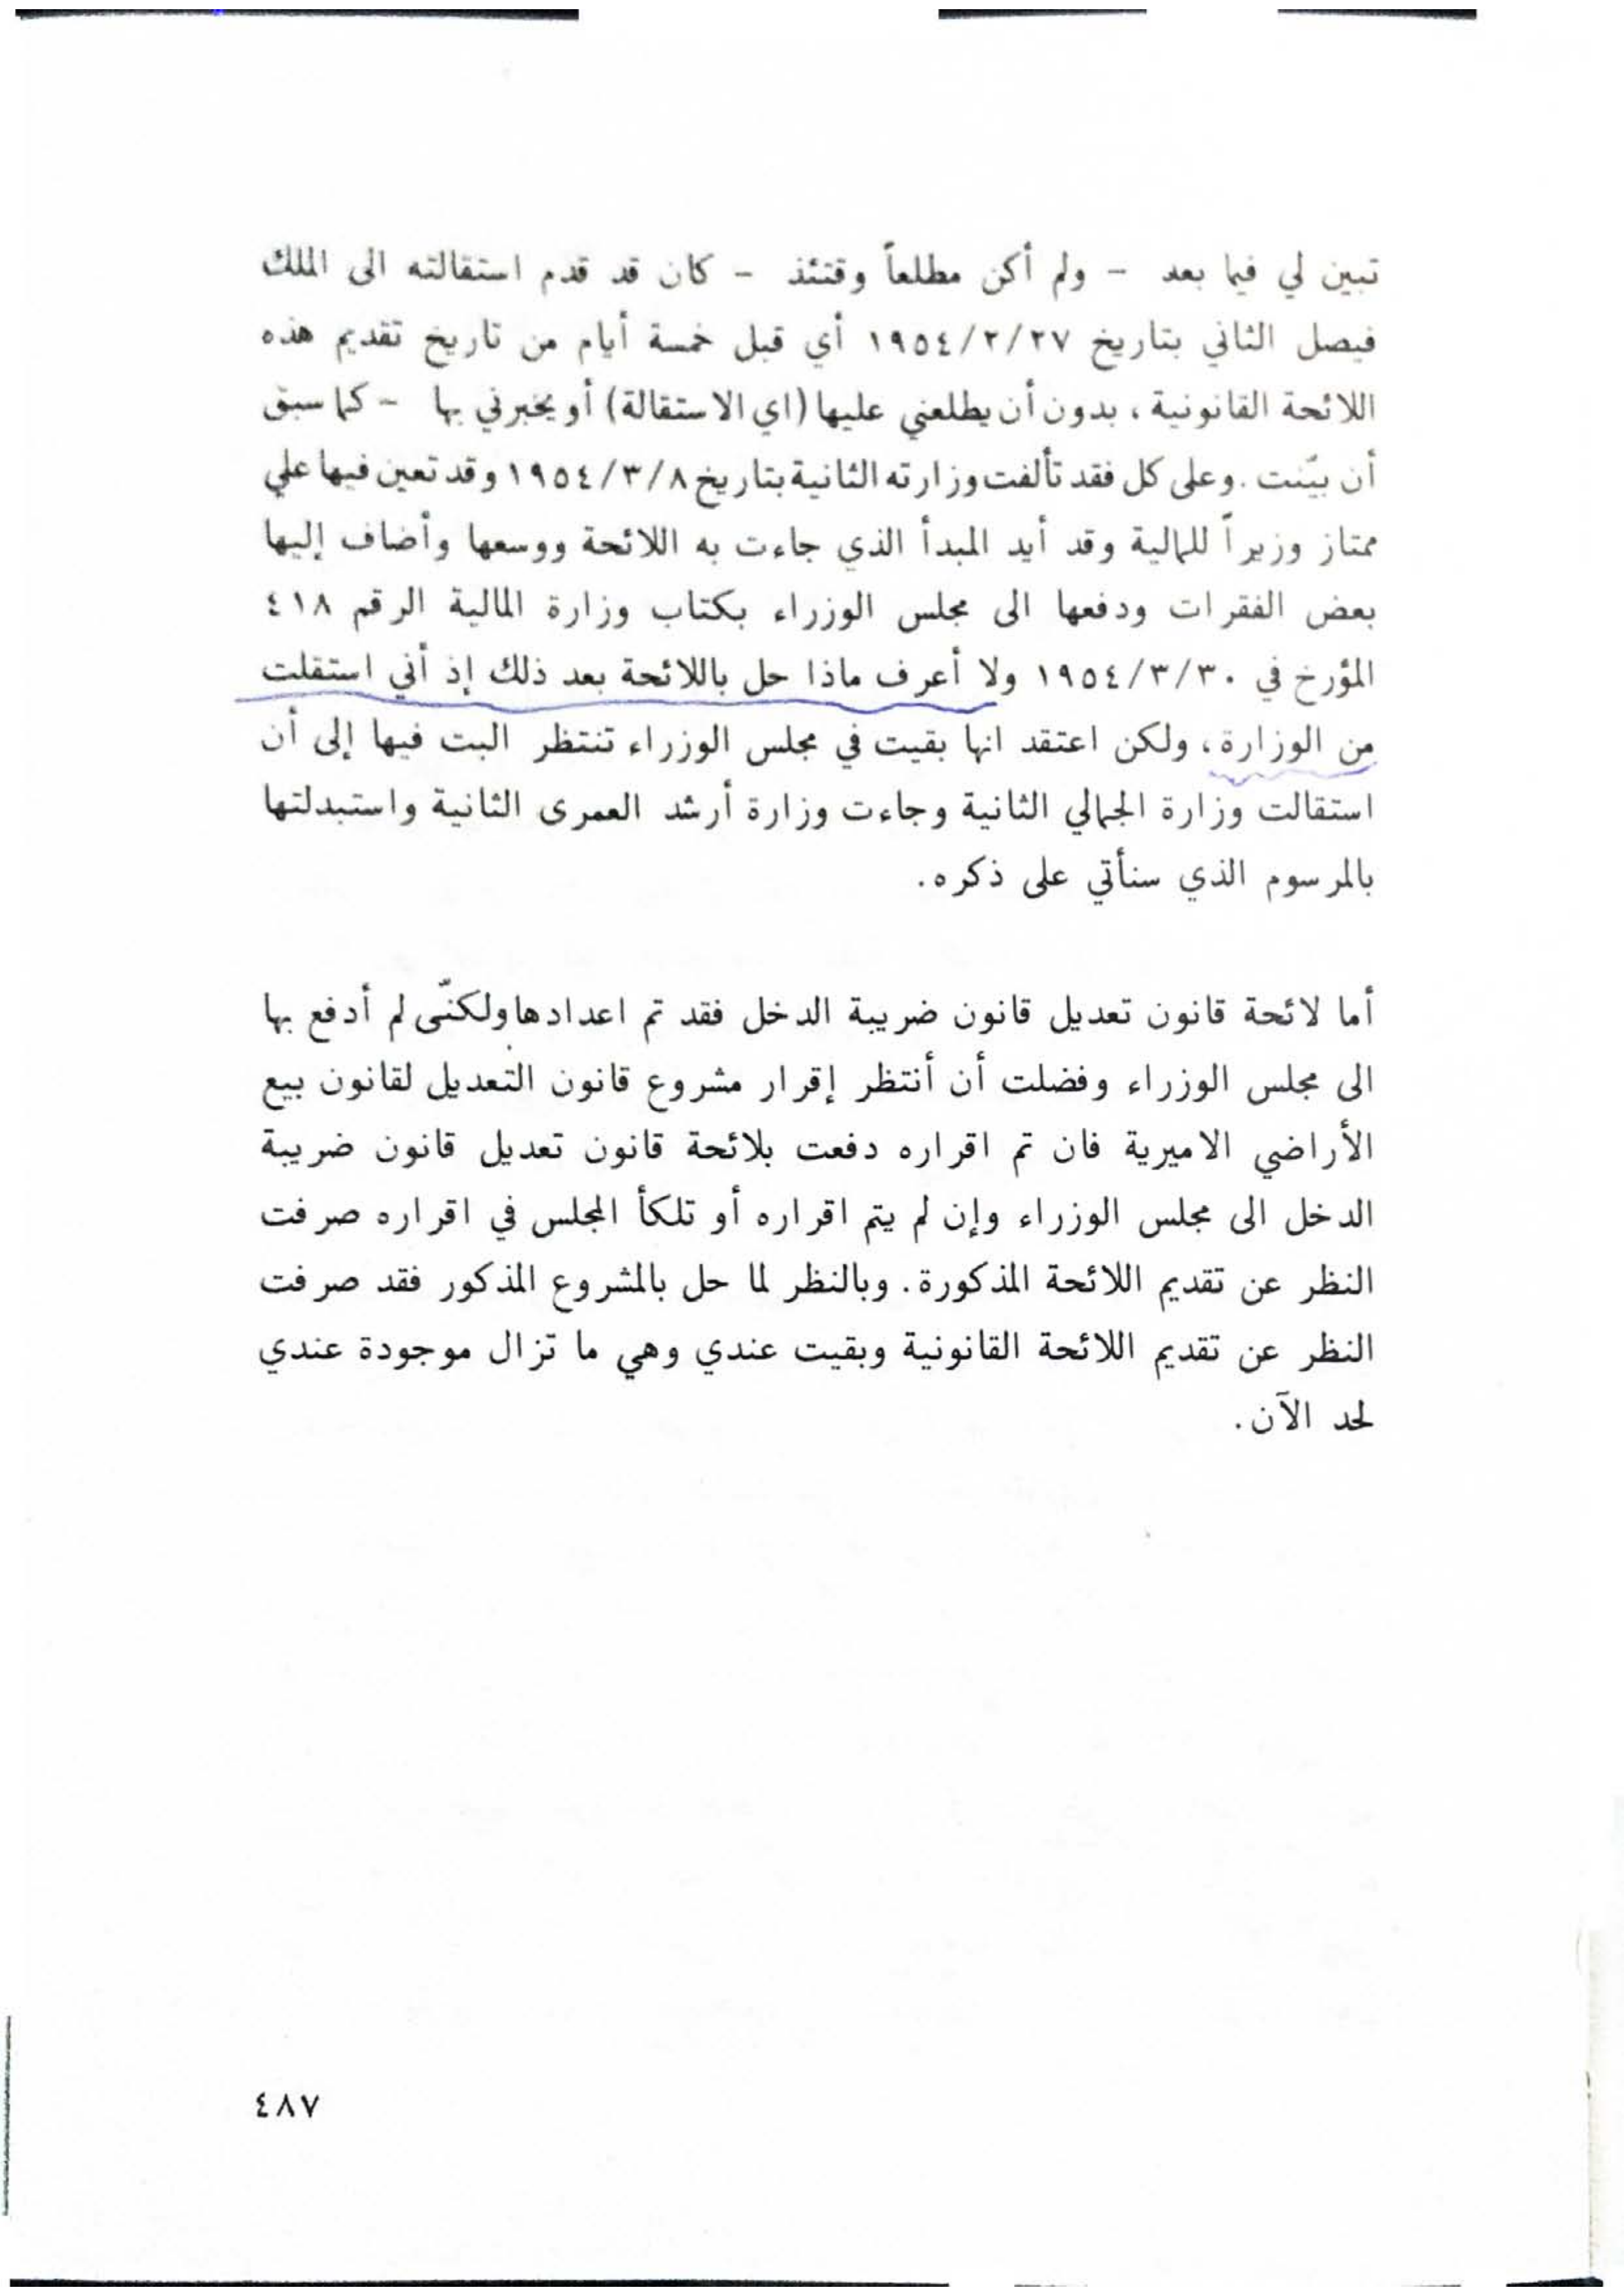 تبين لي فيما بعد - ولم أكن مطلعاً وقتئذ - كان قد قدم استقالته الى الملك
فيصل الثاني بتاريخ ١٩٥٤/٢/٢٧ أي قبل خمسة أيام من تاريخ تقديم هذه
اللائحة القانونية، بدون أن يطلعني عليها (اي الاستقالة) أو يخبرني بها - كما سبق
أن بيّنت. وعلى كل فقد تألفت وزارته الثانية بتاريخ ١٩٥٤/٣/٨ وقد تعين فيها علي
ممتاز وزيراً للمالية وقد أيد المبدأ الذي جاءت به اللائحة ووسعها وأضاف إليها
بعض الفقرات ودفعها الى مجلس الوزراء بكتاب وزارة المالية الرقم ٤١٨
المؤرخ في ١٩٥٤/٣/٣٠ ولا أعرف ماذا حل باللائحة بعد ذلك إذ أني استقلت
من الوزارة، ولكن اعتقد انها بقيت في مجلس الوزراء تنتظر البت فيها إلى أن
استقالت وزارة الجمالي الثانية وجاءت وزارة أرشد العمرى الثانية واستبدلتها
بالمرسوم الذي سنأتي على ذكره.
أما لائحة قانون تعديل قانون ضريبة الدخل فقد تم اعدادها ولكنّى لم أدفع بها
الى مجلس الوزراء وفضلت أن أنتظر إقرار مشروع قانون التعديل لقانون بيع
الأراضي الاميرية فان تم اقراره دفعت بلائحة قانون تعديل قانون ضريبة
الدخل الى مجلس الوزراء وإن لم يتم اقراره أو تلكأ المجلس في اقراره صرفت
النظر عن تقديم اللائحة المذكورة. وبالنظر لما حل بالمشروع المذكور فقد صرفت
النظر عن تقديم اللائحة القانونية وبقيت عندي وهي ما تزال موجودة عندي
لحد الآن.
٤٨٧